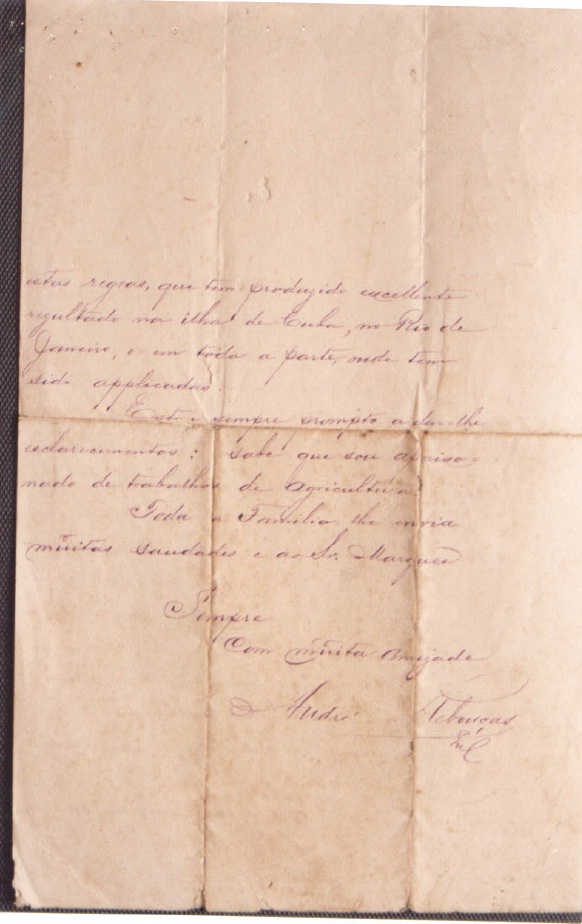 estas regras, que tem produzido excellente
resultado na ilha de Cuba, no Rio de
Janeiro, e em toda a parte, onde tem
sido applicadas.
Estou sempre prompto a dar-lhe
esclarecimentos: Sabe que sou apaixo-
nado de trabalhos de Agricultura
Toda a Familia lhe envia
muitas saudades e ao Snr. Marques
Sempre
Com muita Amizade
André Rebouças